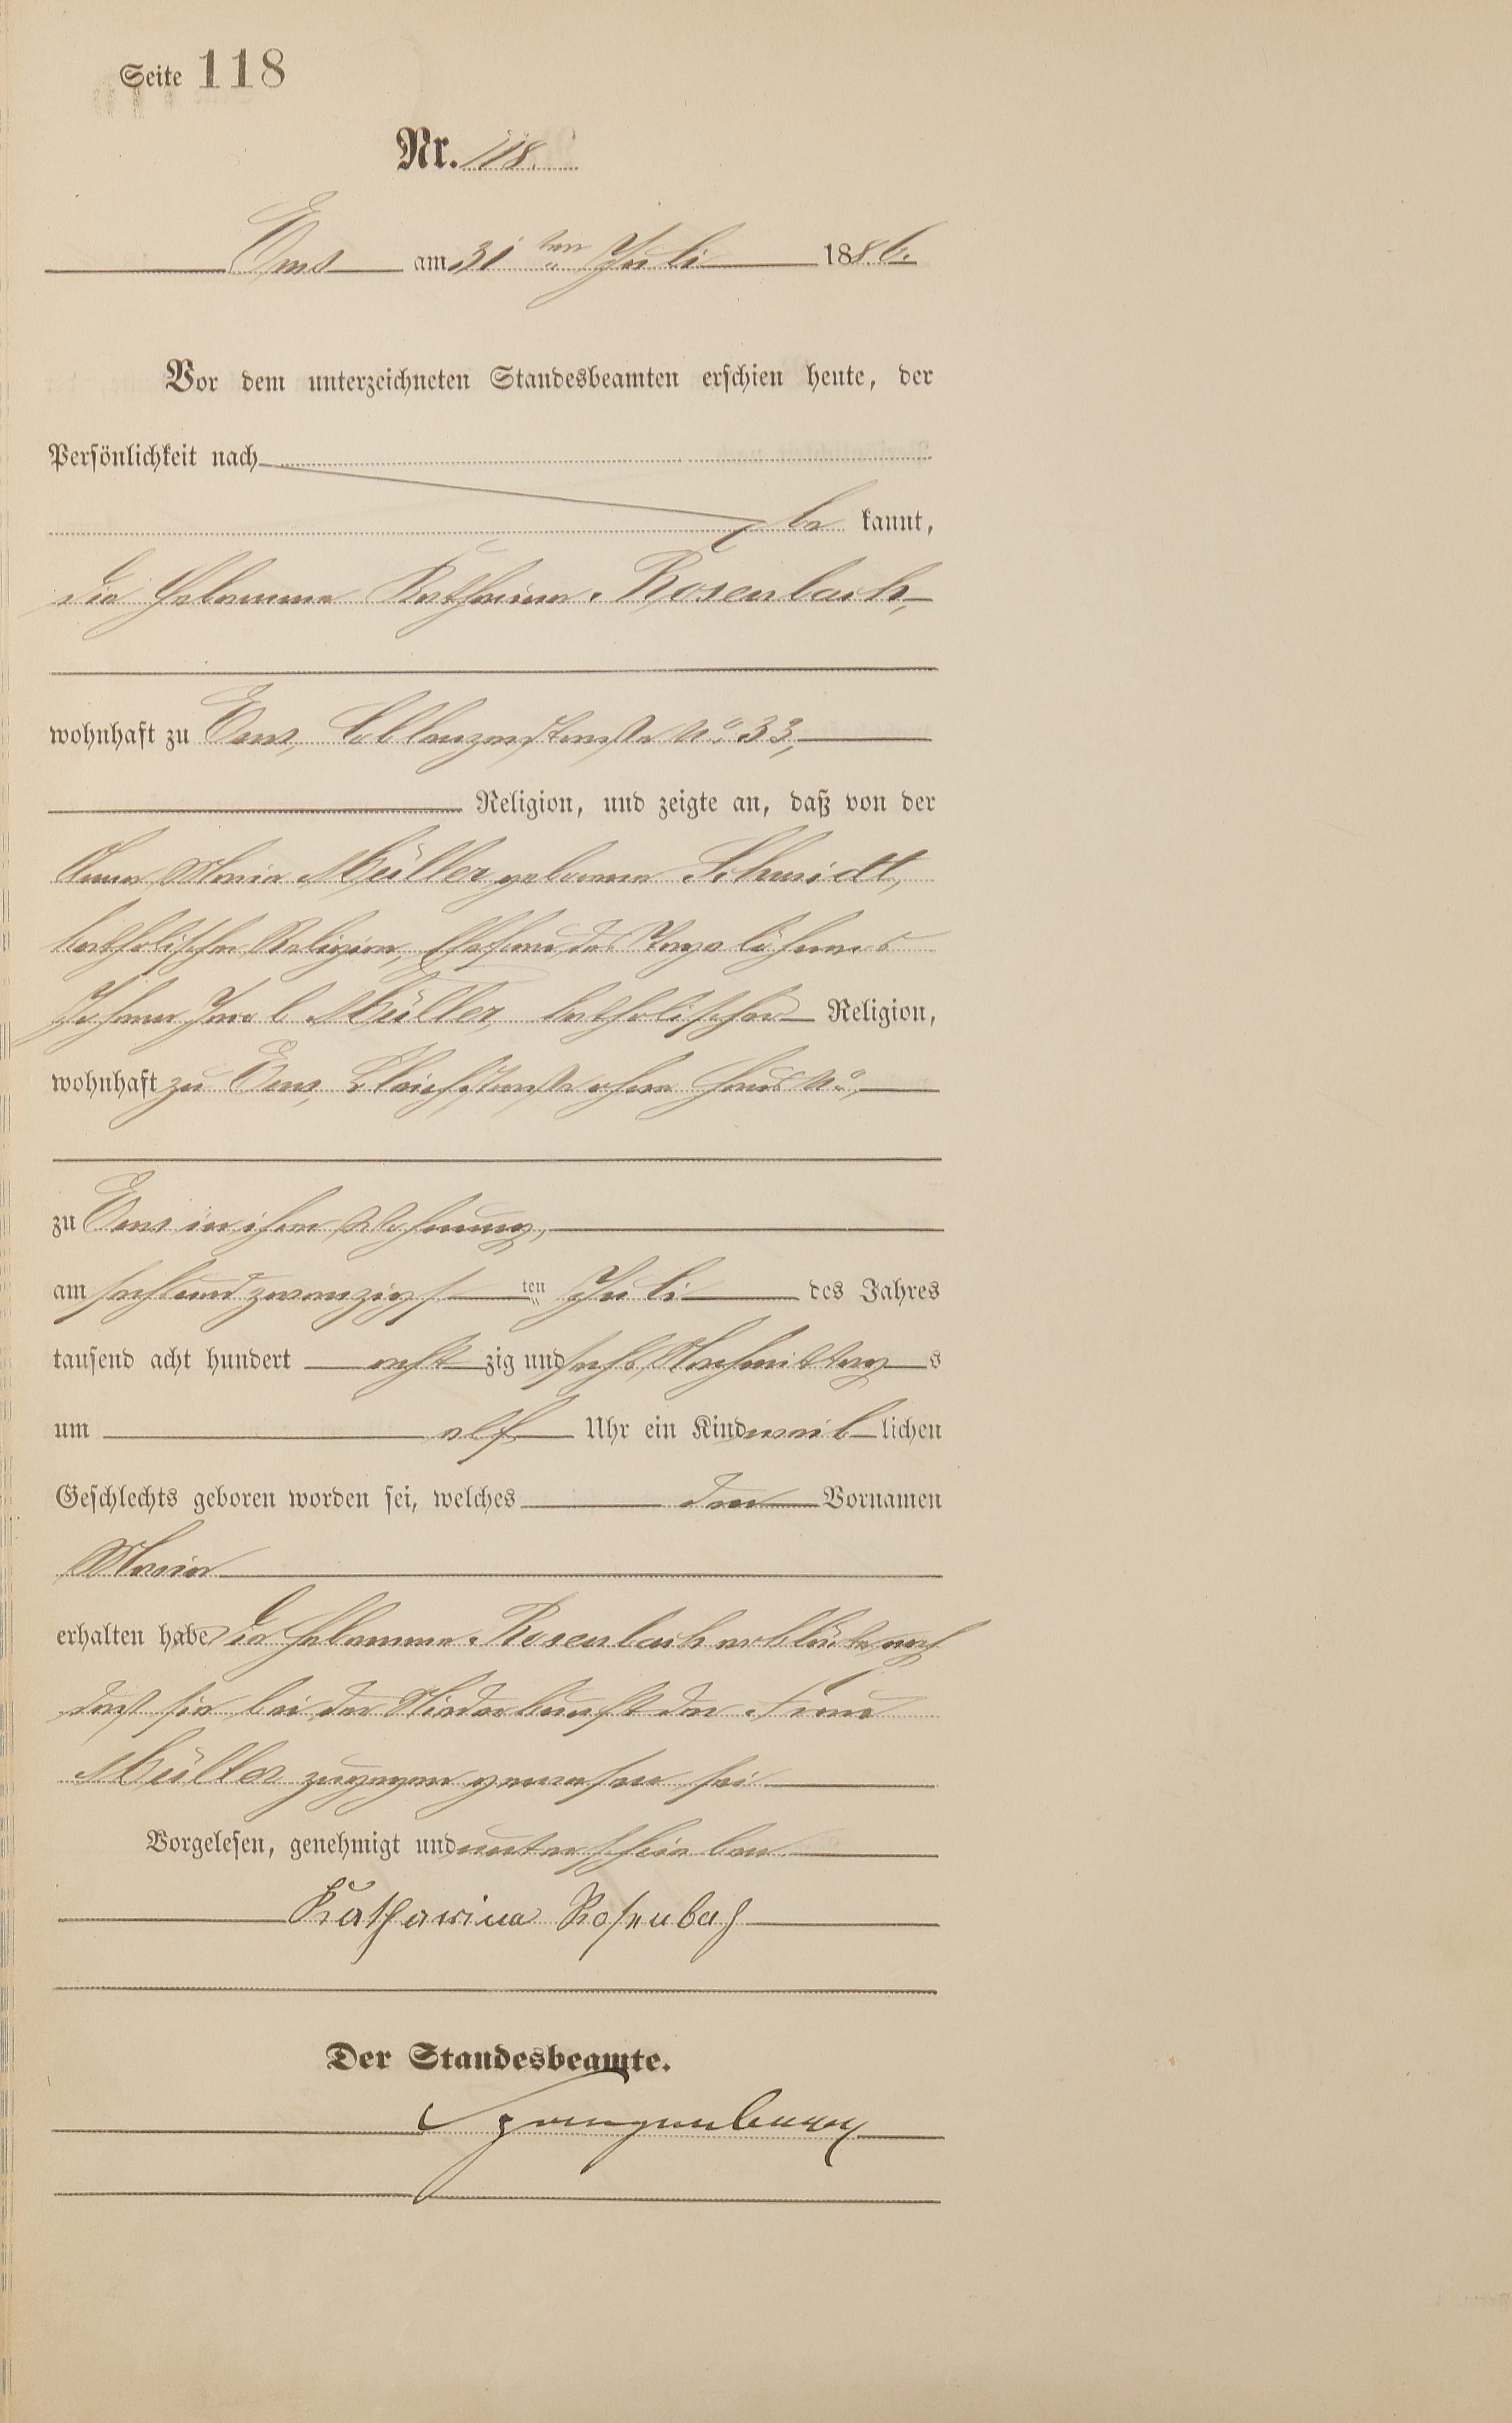 Seite 118
Nr. 118.
Ems am 31ten Juli 1886.
Vor dem unterzeichneten Standesbeamten erschien heute, der
Persönlichkeit nach
be kannt,
die Hebamme Katharina Rosenbach,
wohnhaft zu Ems, Coblenzerstraße No 33,
Religion, und zeigte an, daß von der
Anna Maria Müller geborene Schmidt,
katholischer Religion, Ehefrau des Tagelöhners
Johann Jacob Müller, katholischer Religion,
wohnhaft zu Ems, Bleichstraße ohne Haus No,
zu Ems in ihrer Wohnung,
am sechsundzwanzigsten Juli des Jahres
tausend acht hundert acht zig und sechs Nachmittag s
um elf Uhr ein Kind weib lichen
Geschlechts geboren worden sei, welches den Vornamen
Maria
erhalten habe Die Hebamme Rosenbach erklärte noch
daß sie bei der Niederkunft der Frau
Müller zugegen gewesen sei
Vorgelesen, genehmigt und unterschrieben
Katharina Rosenbach
Der Standesbeamte.